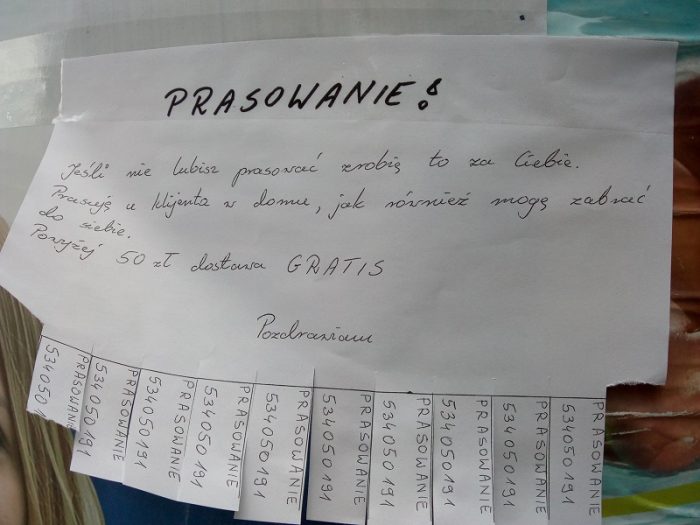 PRASOWANIE!
Jeśli nie lubisz prasować zrobię to za Ciebie.
Prasuję u klijenta w domu, jak również mogę zabrać
do siebie.
Powyżej 50 zł dostawa GRATIS
Pozdrawiam
PRASOWANIE
5340501
PRASOWANIE
534050191
PRASOWANIE
534050191
PRASOWANIE
534050191
PRASOWANIE
534050191
PRASOWANIE
534050191
PRASOWANIE
534050191
PRASOWANIE
534050191
PRASOWANIE
534050191
PRASOWANIE
534050191